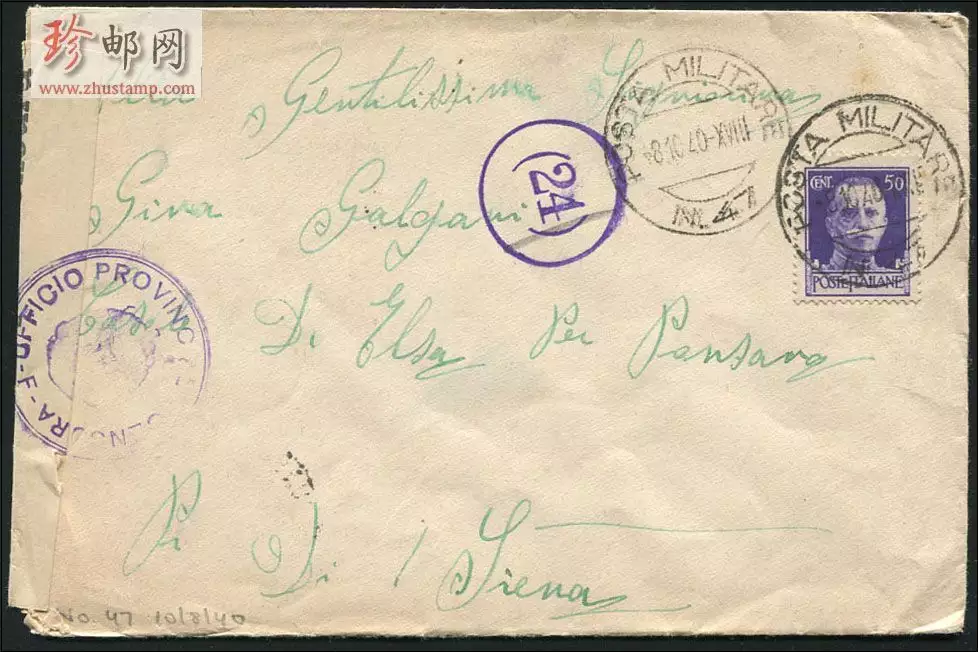 珍邮网
www.zhustamp.com
Alla Gentilissima Signorina
Gina Galgani
Casole Di Elsa Per Pansano
Pr Di Siena
POSTA MILITARE
-8.10.40-XVIII
N. 4
POSTA MILITARE
CENT. 50
POSTE ITALIANE
(24)
UFFICIO PROVINC
CENSURA
No. 47 10/8/40